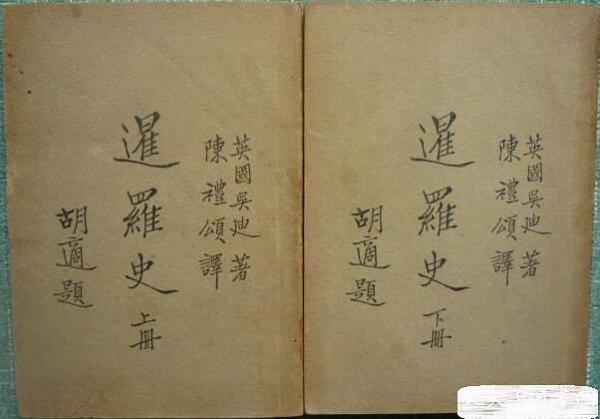 英國吳迪著
陳禮頌譯
暹羅史上冊
胡適題
英國吳迪著
陳禮頌譯
暹羅史下冊
胡適題